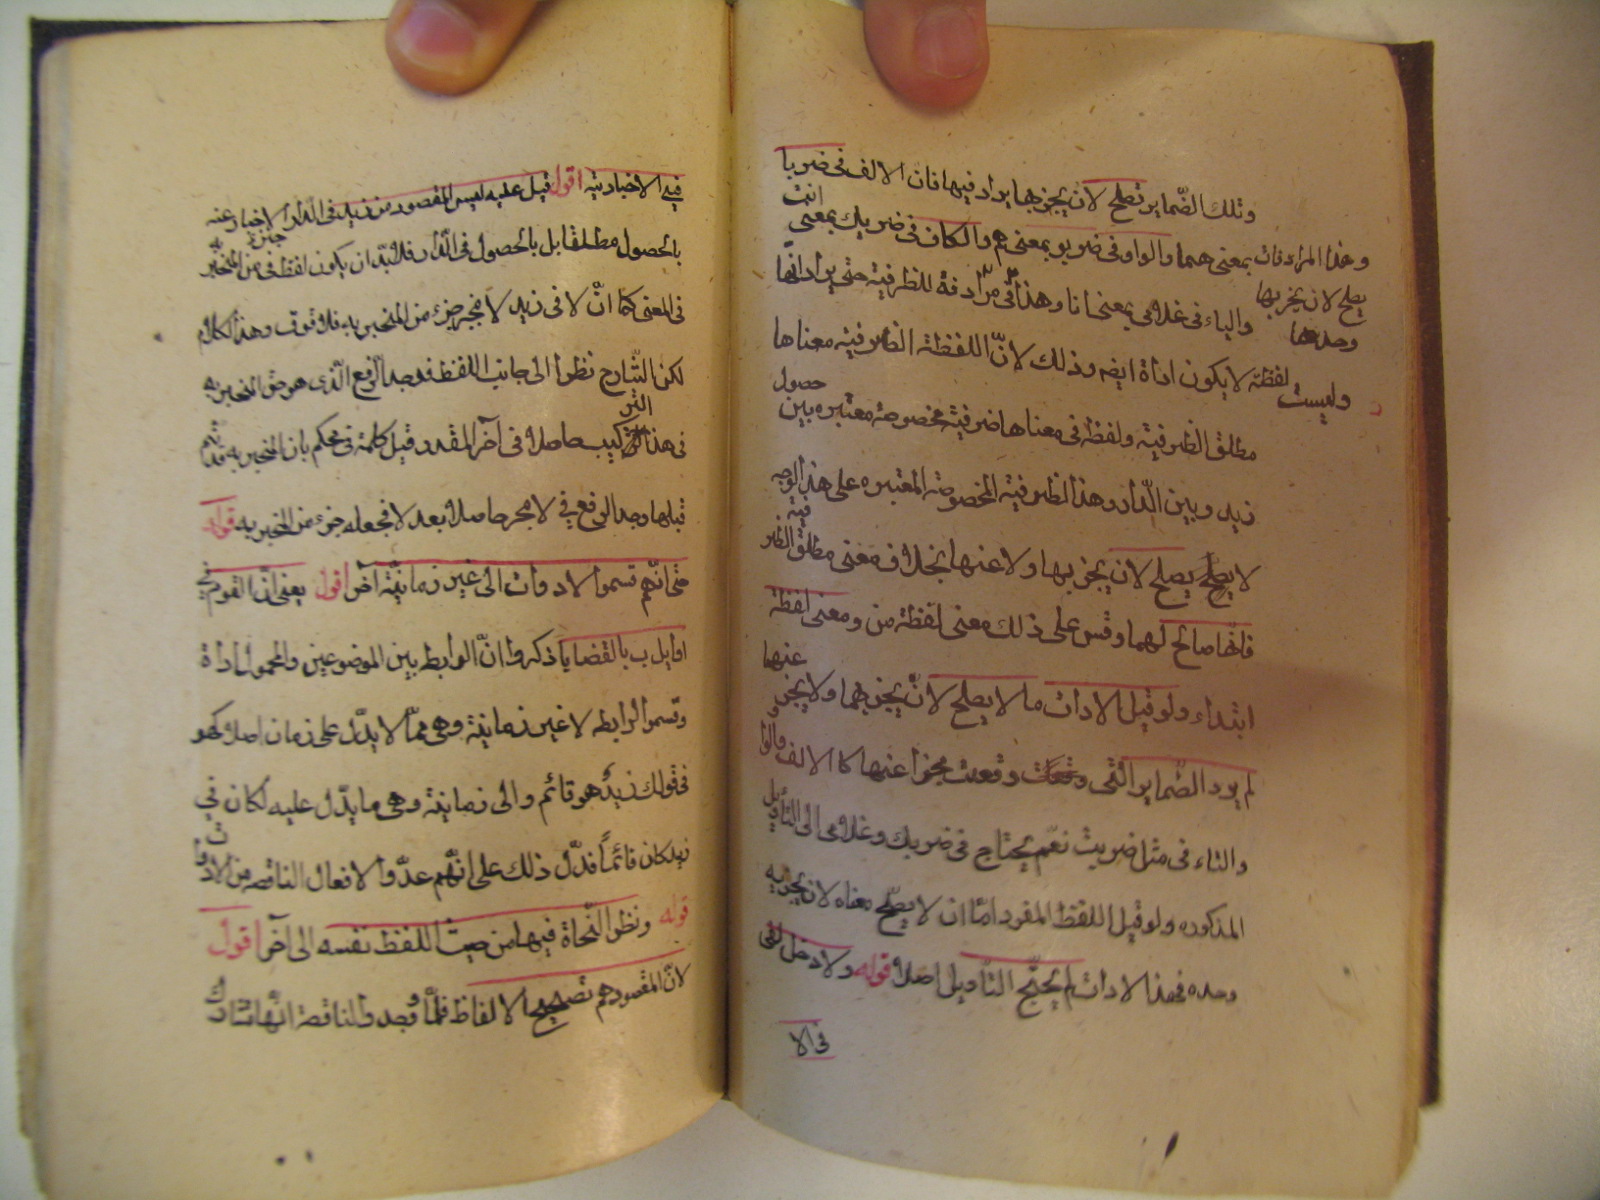 وتلك الضماير تصلح لان يخبر بها يراد فيها فان الالف فى ضربا
وهذا المرادفات بمعنى هما والواو فى ضربو بمعنى هم والكاف فى ضربك بمعنى انت
يصلح لان يخبر بها وحدها
والياء فى غلامى بمعنى انا وهذا فى مرادفة للظرفية حتى يراد انها
وليست لفظة لا يكون اداة ايضه وذلك لان اللفظة الظرفية معناها
مطلق الظرفية ولفظة فى معناها ضرفية مخصوصة معتبره بين حصول
زيد وبين الدار وهذا الظرفية المخصوصة المعتبره على هذ الوجه
لا يصلح يصلح لان يخبر بها ولا عنها بخلاف معنى مطلق الظرفية
فانها صالح لهما وقس على ذلك معنى لفظة من ومعنى لفظة
ابتداء ولو قيل الادات ما لا يصلح لان يخبر بهما ولا يخبر عنهما
لم يرد الضماير التى وقعت مخبرا عنها كا الالف والواو
والتاء فى مثل ضربت نعم يحتاج فى ضربك وغلامى الى التأويل
المذكوره ولو قيل اللفظ المفرد اما ان لا يصلح معناه لان يخبر به
وحده فهذا الادات لم يحتج التأويلى اصلا قوله ولا دخل لفى
فى الا
فى الاخبار به اقول قيل عليه ليس المقصود من زيد فى الدار الاخبار عنه
بالحصول مطلقا بل بالحصول فى الدار فلا بد ان يكون لفظ فى جزء من المخبر به
فى المعنى كما ان لا فى زيد لا حجر جزء من المخبر به فلا فرق وهذا كلام
لكن الشارح نظرا الى جانب اللفظ فوجد الرفع الذى هو حق المخبر به
فى هذا التركيب حاصلا فى آخر المقدر قبل كلمة فى فحكم بان المخبر به قد تم
قبلها وجد الرفع فى لا حجر حاصلا بعد لا فجعله جزء من المخبر به قوله
حتى انهم قسموا الادوات الى غير زمانية آخر اقول يعنى ان القوم فى
اوايل ب بالقضايا ذكروا ان الرابط بين الموضوعين والمحمول اداة
وقسموا الرابطه لا غير زمانية وهى مما لا يدل على زمان اصلا كهو
فى قولك زيد هو قائم والى زمانية وهى ما يدل عليه لكان فى
زيد كان قائما فدل ذلك على انهم عدوا الافعال الناقصه من الادوات
قوله ونظر النحاة فيها من حيث اللفظ نفسه الى آخر اقول
لان المقصودهم تصحيح الالفاظ فلما وجد والناقصة انها تشارك